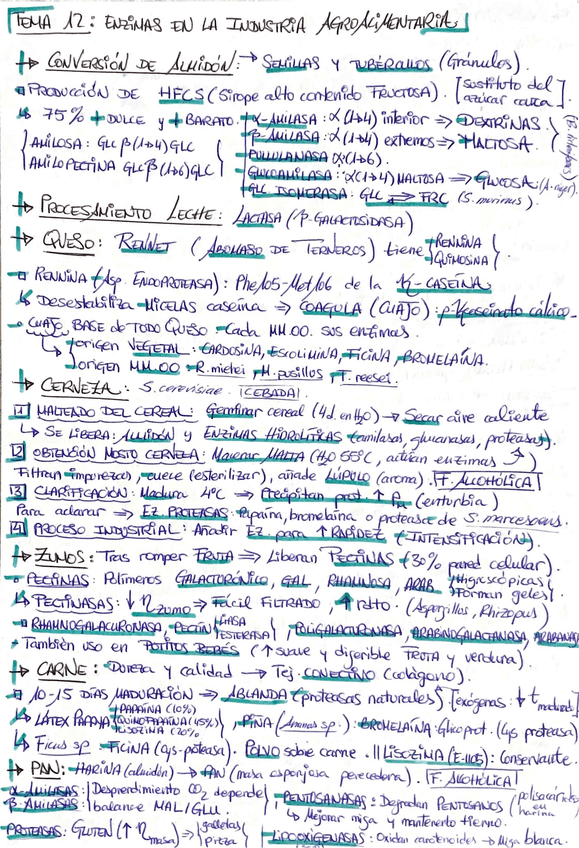 TEMA 12: ENZIMAS EN LA INDUSTRIA AGROALIMENTARIA
→ CONVERSIÓN DE ALMIDÓN: → SEMILLAS Y TUBÉRCULOS (Gránulos).
PRODUCCIÓN DE HFCS (Sirope alto contenido FRUCTOSA). [sustituto del azúcar caña]
↳ 75% + DULCE y + BARATO.
AMILOSA: GLC β(1→4) GLC
AMILOPECTINA GLC β(1→6) GLC
α-AMILASA: α(1→4) interior ⇒ DEXTRINAS.
β-AMILASA: α(1→4) extremos ⇒ MALTOSA.
PULLULANASA α(1→6).
GLUCOAMILASA: α(1→4) MALTOSA ⇒ GLUCOSA (A. niger).
GLC ISOMERASA: GLC ⇒ FRC (S. murinus).
→ PROCESAMIENTO LECHE: LACTASA (β-GALACTOSIDASA)
→ QUESO: RENNET (ABOMASO DE TERNEROS) tiene { RENNINA QUIMOSINA }
RENNINA (Asp. ENDOPROTEASA): Phe105-Met106 de la K-CASEÍNA
↳ Desestabiliza MICELAS caseína ⇒ COAGULA (CUAJO): p-Kcaseinato cálcico
CUAJO, BASE de TODO QUESO. Cada MM.OO. sus enzimas.
↳ origen VEGETAL: CARDOSINA, ESCOLIMINA, FICINA, BROMELAÍNA.
↳ origen MM.OO: R. miehei, M. pusillos, T. reesei.
→ CERVEZA: S. cerevisiae. [CEBADA]
1 MALTEADO DEL CEREAL: Germinar cereal (4d. en H₂O) → Secar aire caliente
↳ SE LIBERA: ALMIDÓN y ENZIMAS HIDROLÍTIKAS (amilasas, glucanasas, proteasas).
2 OBTENCIÓN MOSTO CERVEZA: Macerar MALTA (H₂O 55°C, actúan enzimas ↑)
Filtran impurezas, cuece (esterilizar), añade LÚPULO (aroma). [F. ALCOHÓLICA]
3 CLARIFICACIÓN: Madura 4°C → Precipitan prot. ↑ Pm (enturbia)
Para aclarar → EZ. PROTEASAS: Papaína, bromelaína o proteasa de S. marcescens.
4 PROCESO INDUSTRIAL: Añadir EZ. para ↑ RAPIDEZ (INTENSIFICACIÓN).
→ ZUMOS: Tras romper FRUTA → Liberan PECTINAS (30% pared celular).
PECTINAS: Polímeros GALACTURÓNICO, GAL, RHAMNOSA, ARAB { Higroscópicas Forman geles }
↳ PECTINASAS: ↓ η zumo ⇒ Fácil FILTRADO, ↑ rdto. (Aspergillus, Rhizopus)
RHAMNOGALACURONASA, PECTIN { LIASA ESTERASA }, POLIGALACTURONASA, ARABINOGALACTANASA, ARABANASA
También uso en POTITOS BEBÉS (↑ suave y digerible FRUTA y verdura).
→ CARNE: Dureza y calidad → Tej. CONECTIVO (colágeno).
10-15 DÍAS MADURACIÓN ⇒ ABLANDA (proteasas naturales) [exógenas: ↓ t madurac]
↳ LÁTEX PAPAYA { PAPAÍNA (10%) QUIMOPAPAÍNA (45%) LISOZIMA (20%) }, PIÑA (Ananas sp.): BROMELAÍNA: Glicoprot. (Cys proteasa)
↳ Ficus sp. FICINA (cys-proteasa). POLVO sobre carne. || LISOZIMA (E-1105): Conservante.
→ PAN: HARINA (almidón) → PAN (masa esponjosa perecedera). [F. ALCOHÓLICA]
α-AMILASAS: Desprendimiento CO₂ depende
β-AMILASAS: balance MAL/GLU.
PROTEASAS: GLUTEN (↑ η masa) ⇒ { galletas pizza
PENTOSANASAS: Degradan PENTOSANOS (polisacárido en harina)
↳ Mejorar miga y mantenerlo tierno.
LIPOOXIGENASAS: Oxidan carotenoides → Miga blanca.